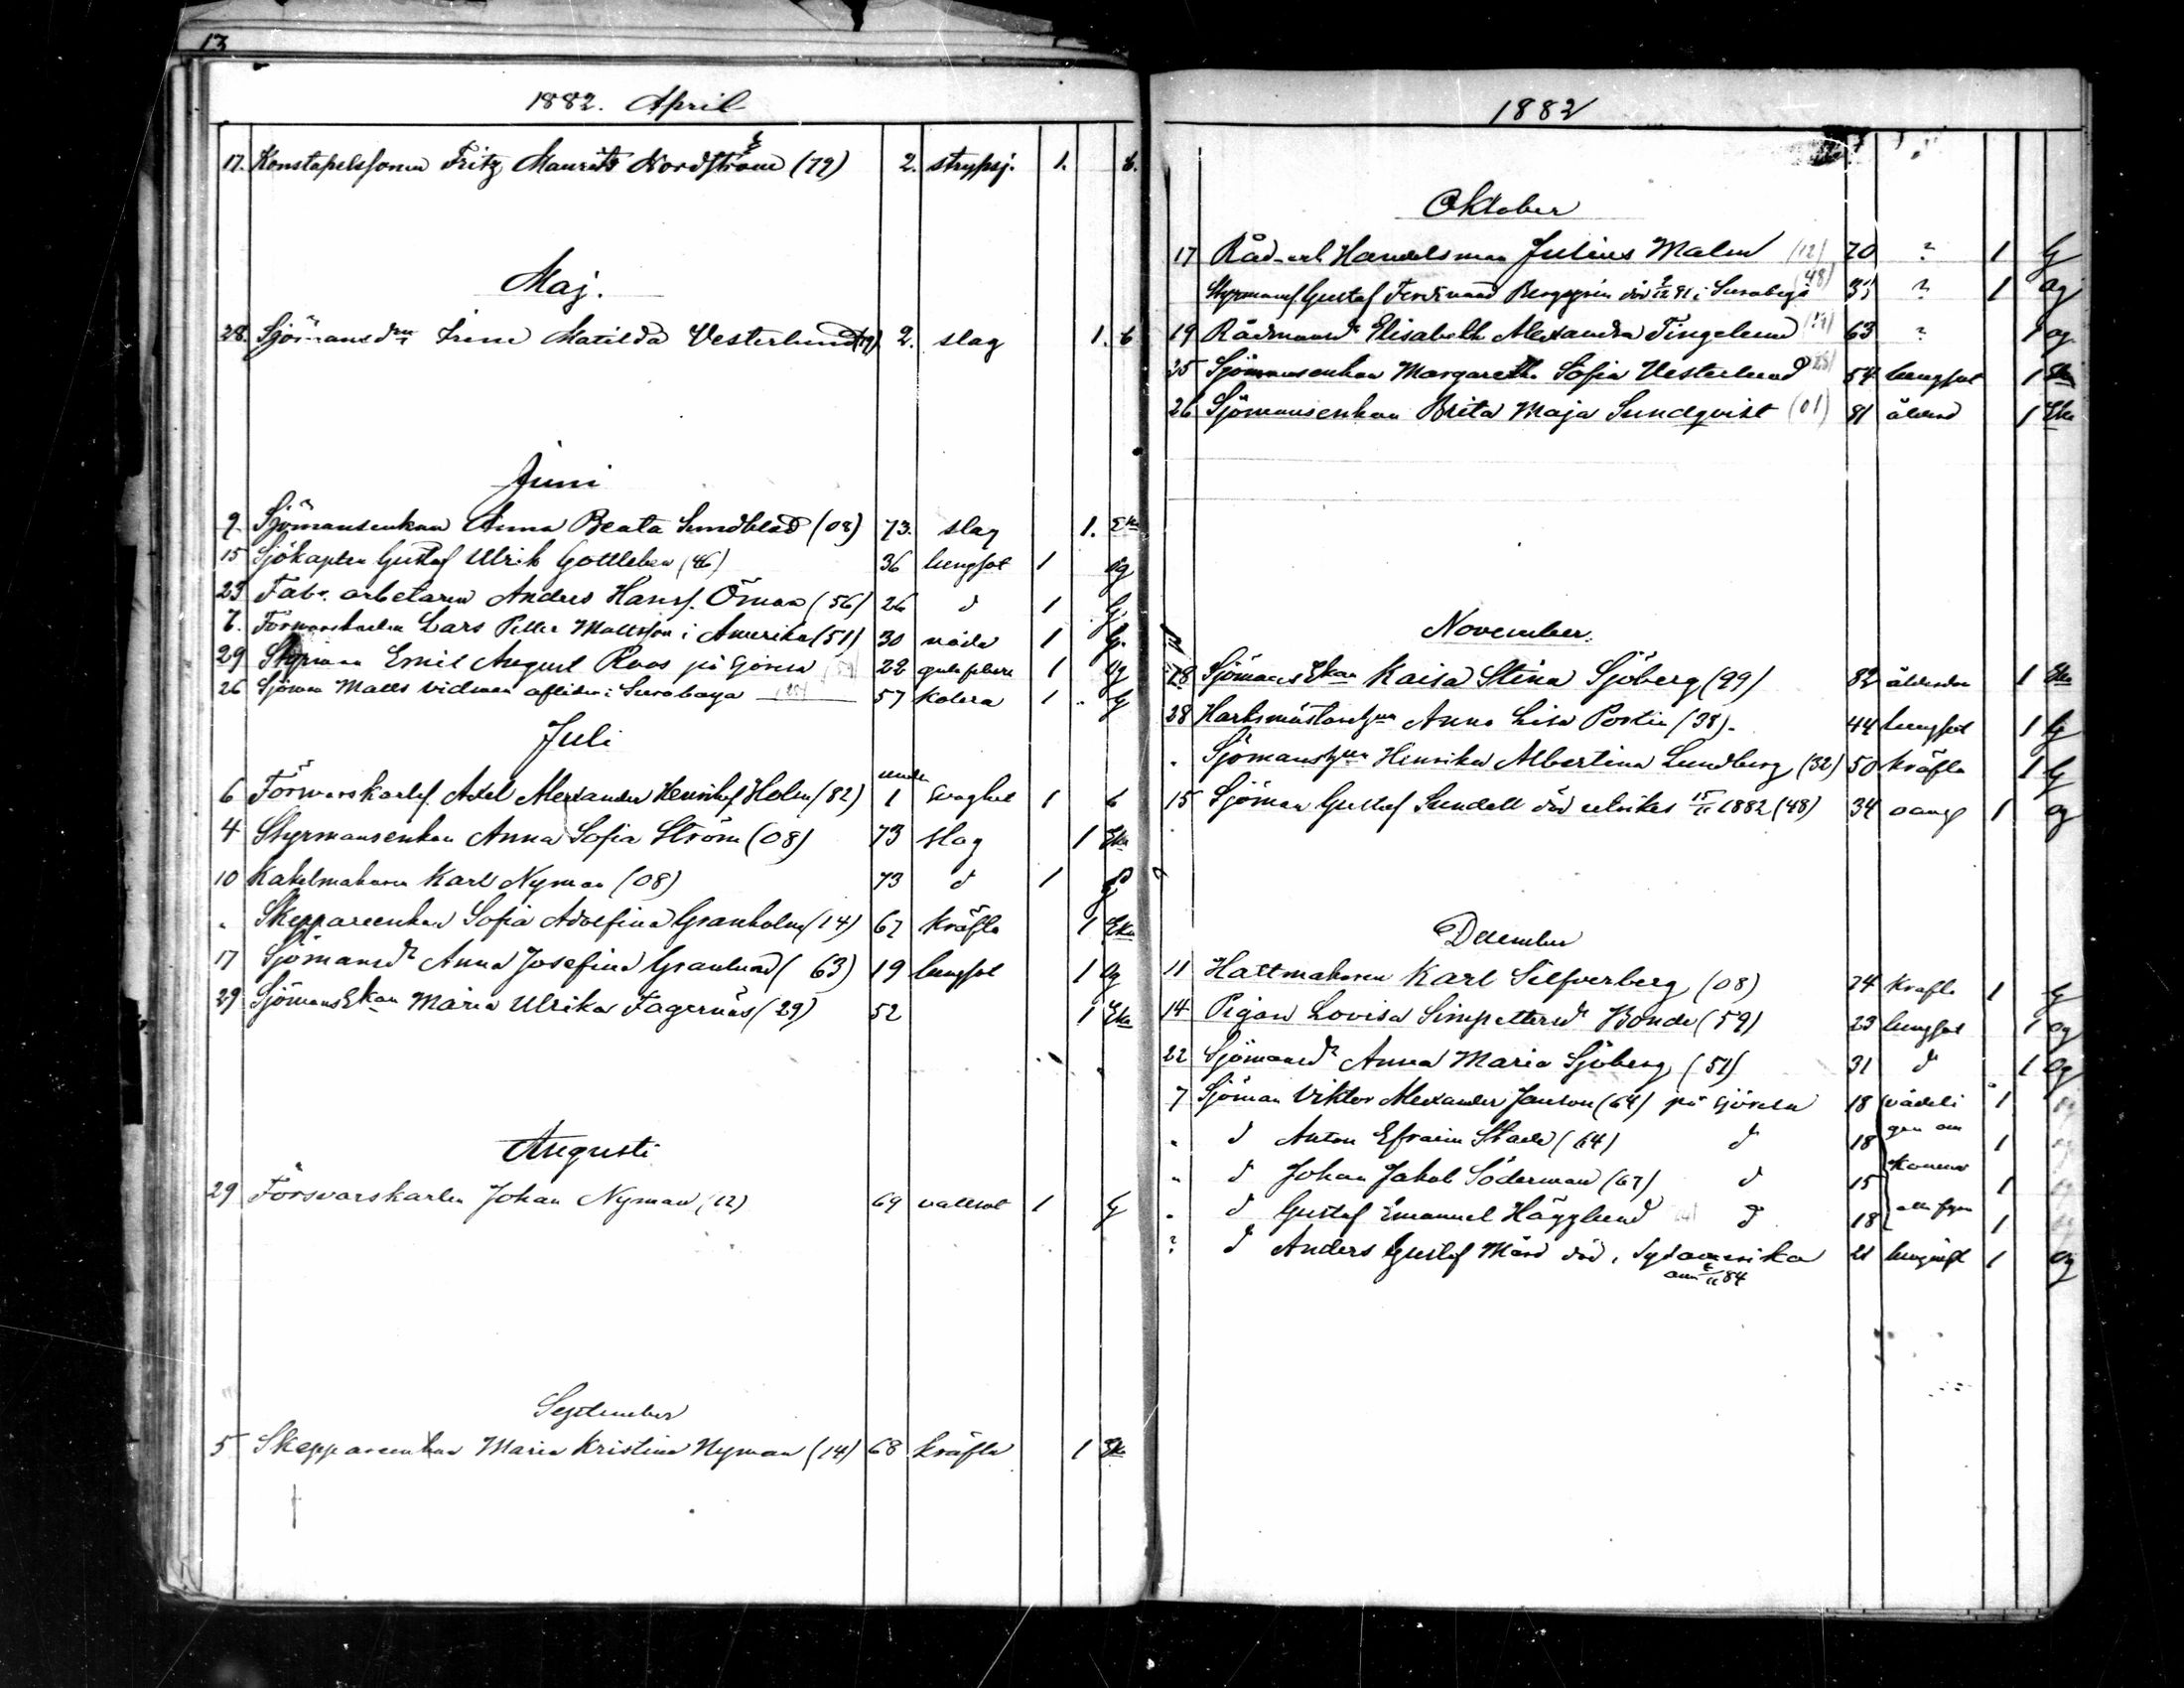 13
1882. April
17. Konstapelssonen Fritz Maurits Nordström (79) 2. strypsj. 1. b.
Maj.
28. Sjömansdtr Irene Matilda Vesterlund (79) 2. slag 1. b
Juni
9. Sjömansenkan Anna Beata Sundblad (08) 73. slag 1. Eka
15 Sjökapten Gustaf Ulrik Gottleben (46) 36 lungsot 1 og
23 Fabr. arbetaren Anders Hansf. Öman (56) 26 d 1 G
7. Försvarskarlen Lars Petter Mattsson i Amerika (51) 30 våda 1 G.
29 Emil August Roos på sjöresa 22 gula febern 1 Og
26 Sjöman Matts Vidman afliden i Surabaya (25) 57 kolera 1 G
Juli
6 Försvarskarlsf. Axel Alexander Henriksf Holm (82) under 1 svaghet 1 b
4 Styrmansenkan Anna Sofia Ström (08) 73 slag 1 Eka
10 Kakelmakaren Karl Nyman (08) 73 d 1 G
" Skeppareenkan Sofia Adolfina Granholm (14) 67 kräfta 1 Eka
17 Sjömansdr Anna Josefina Granlund (63) 19 lungsot 1 Og
29 SjömansEkan Maria Ulrika Fagernäs (29) 52 1 Eka
Augusti
29 Försvarskarlen Johan Nyman (12) 69 vattsot 1 G
September
5 Skeppareenkan Maria Kristina Nyman (14) 68 kräfta 1 Eka
1882
Oktober
17 Råd- och Handelsman Julius Malm (12) 70 ? 1 G
Styrmansf Gustaf Ferdinand Berggrén död 9/12 81 i Surabaya (48) 33 ? 1 Og
19 Rådmansdr Elisabeth Alexandra Tingelund (19) 63 ? 1 og
25 Sjömansenkan Margaretha Sofia Vesterlund (28) 54 lungsot 1 Eka
26 Sjömansenkan Brita Maja Sundqvist (01) 81 ålderd 1 Eka
November.
18 SjömansEkan Kaisa Stina Sjöberg (99) 82 ålderdom 1 Eka
28 Hattmästarehun Anna Lisa Postin (38). 44 lungsot 1 G
" Sjömanshun Henrika Albertina Lundberg (32) 50 kräfta 1 G
15 Sjöman Gustaf Sundell död utrikes 15/11 1882 (48) 34 1 og
December
11 Hattmakaren Karl Silfverberg (08) 74 kräfta 1 G
14 Pigan Lovisa Simpettersdr Bonde (59) 23 lungsot 1 og
22 Sjömansdr Anna Maria Sjöberg (51) 31 d 1 Og
7 Sjöman Viktor Alexander Janson (64) på sjöresa 18 vådeli 1 og
" d Anton Efraim Stade (64) d 18 gen om 1 og
" d Johan Jakob Söderman (67) d 15 komna 1 og
" d Gustaf Emanuel Hägglund (64) d 18 alla fyra 1 og
? d Anders Gustaf Mård död i Sydamerika 21 lunginfl 1 Og
anm 84